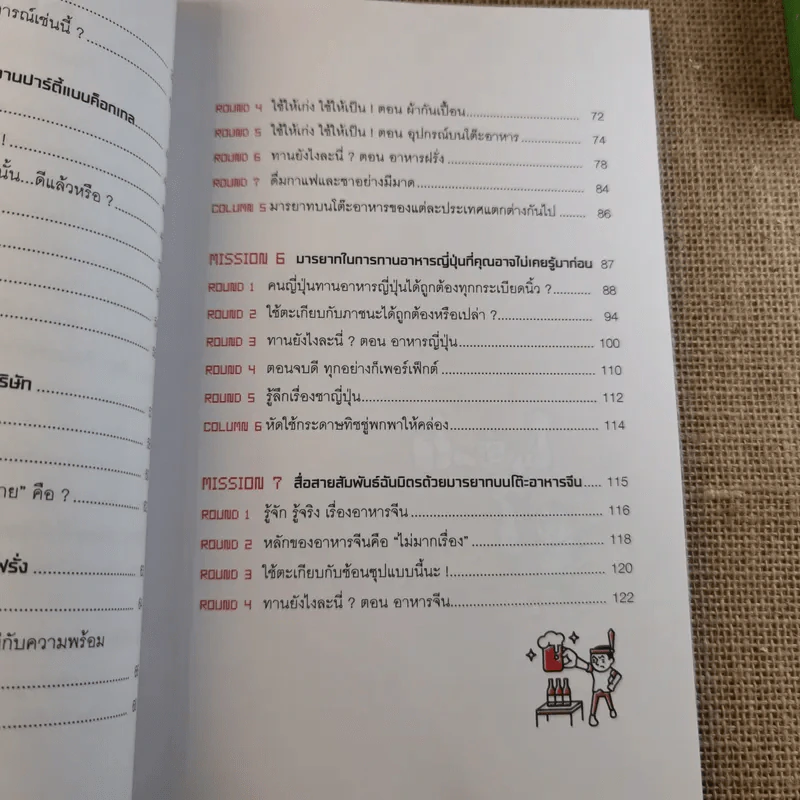 ารณ์เช่นนี้ ?
งานปาร์ตี้แบบค็อกเทล
!
นั้น...ดีแล้วหรือ ?
ริษัท
าย” คือ ?
ฝรั่ง
กับความพร้อม
ROUND 4 ใช้ให้เก่ง ใช้ให้เป็น ! ตอน ผ้ากันเปื้อน 72
ROUND 5 ใช้ให้เก่ง ใช้ให้เป็น ! ตอน อุปกรณ์บนโต๊ะอาหาร 74
ROUND 6 ทานยังไงละนี่ ? ตอน อาหารฝรั่ง 78
ROUND 7 ดื่มกาแฟและชาอย่างมีมาด 84
COLUMN 5 มารยาทบนโต๊ะอาหารของแต่ละประเทศแตกต่างกันไป 86
MISSION 6 มารยาทในการทานอาหารญี่ปุ่นที่คุณอาจไม่เคยรู้มาก่อน 87
ROUND 1 คนญี่ปุ่นทานอาหารญี่ปุ่นได้ถูกต้องทุกกระเบียดนิ้ว ? 88
ROUND 2 ใช้ตะเกียบกับภาชนะได้ถูกต้องหรือเปล่า ? 94
ROUND 3 ทานยังไงละนี่ ? ตอน อาหารญี่ปุ่น 100
ROUND 4 ตอนจบดี ทุกอย่างก็เพอร์เฟ็กต์ 110
ROUND 5 รู้ลึกเรื่องชาญี่ปุ่น 112
COLUMN 6 หัดใช้กระดาษทิชชู่พกพาให้คล่อง 114
MISSION 7 สื่อสายสัมพันธ์ฉันมิตรด้วยมารยาทบนโต๊ะอาหารจีน 115
ROUND 1 รู้จัก รู้จริง เรื่องอาหารจีน 116
ROUND 2 หลักของอาหารจีนคือ “ไม่มากเรื่อง” 118
ROUND 3 ใช้ตะเกียบกับช้อนซุปแบบนี้นะ ! 120
ROUND 4 ทานยังไงละนี่ ? ตอน อาหารจีน 122